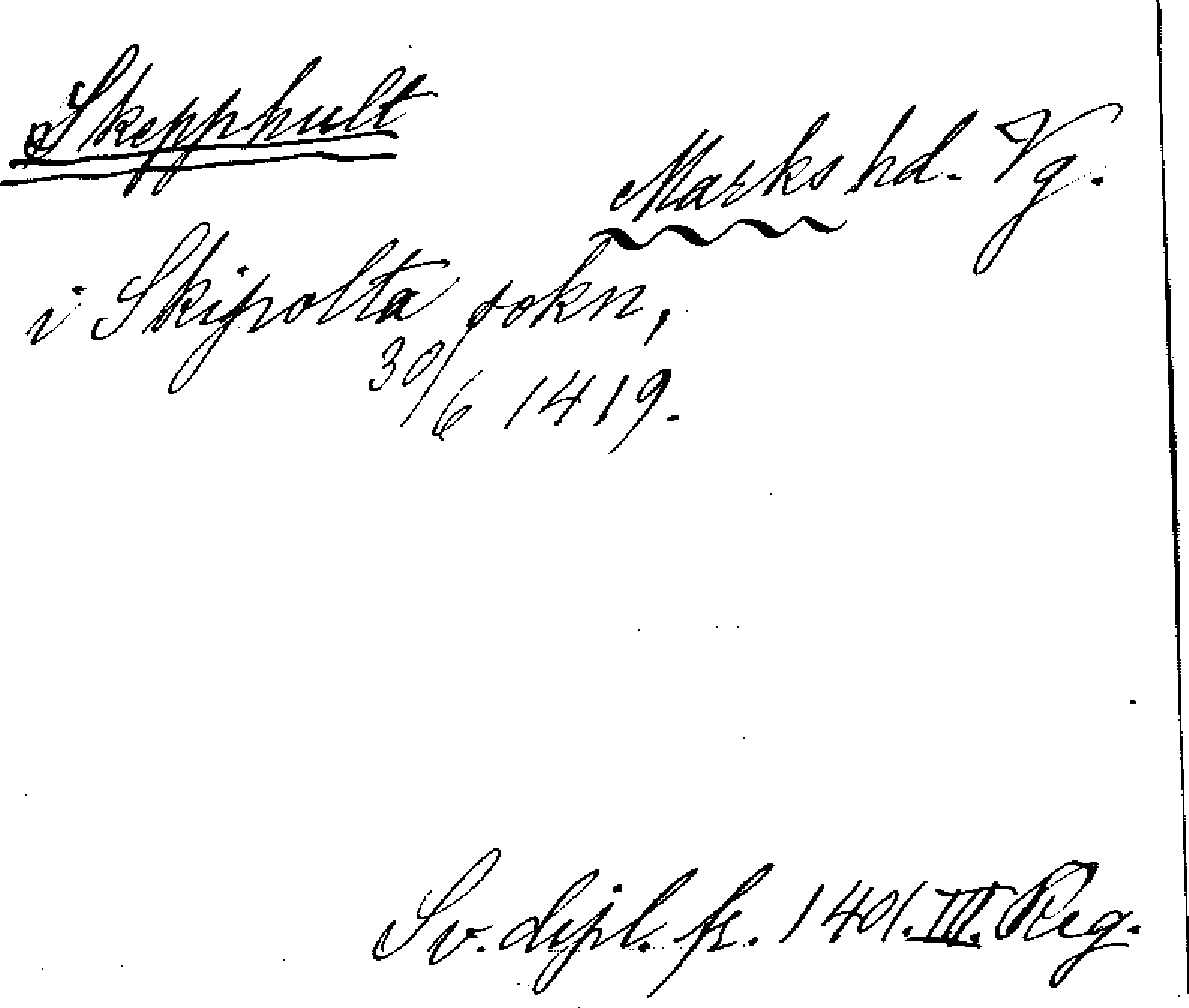 Skepphult
Marks hd. Vg.
i Skipolta sokn,
30/6 1419.
Sv. dipl. fr. 1401. III. Reg.